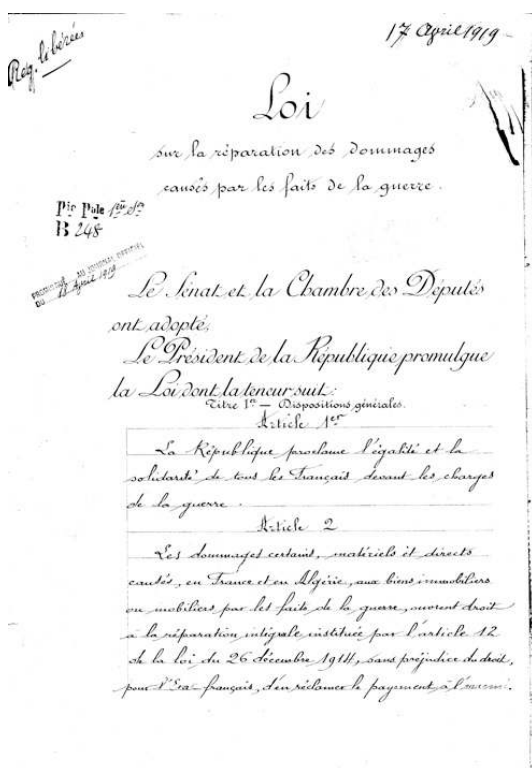 17 April 1919
Reg. libérées
Loi
sur la réparation des dommages
causés par les faits de la guerre.
Pie Pole
B 248
PROMULGUÉ AU JOURNAL OFFICIEL
DU 18 April 1919
Le Sénat et la Chambre des Députés
ont adopté,
Le Président de la République promulgue
la Loi dont la teneur suit:
Titre 1er — Dispositions générales.
Article 1er
La République proclame l'égalité et la
solidarité de tous les Français devant les charges
de la guerre.
Article 2
Les dommages certains, matériels et directs
causés, en France et en Algérie, aux biens immobiliers
ou mobiliers par les faits de la guerre, ouvrent droit
à la réparation intégrale instituée par l'article 12
de la loi du 26 décembre 1914, sans préjudice du droit,
pour l'Etat français, d'en réclamer le payement à l'ennemi.